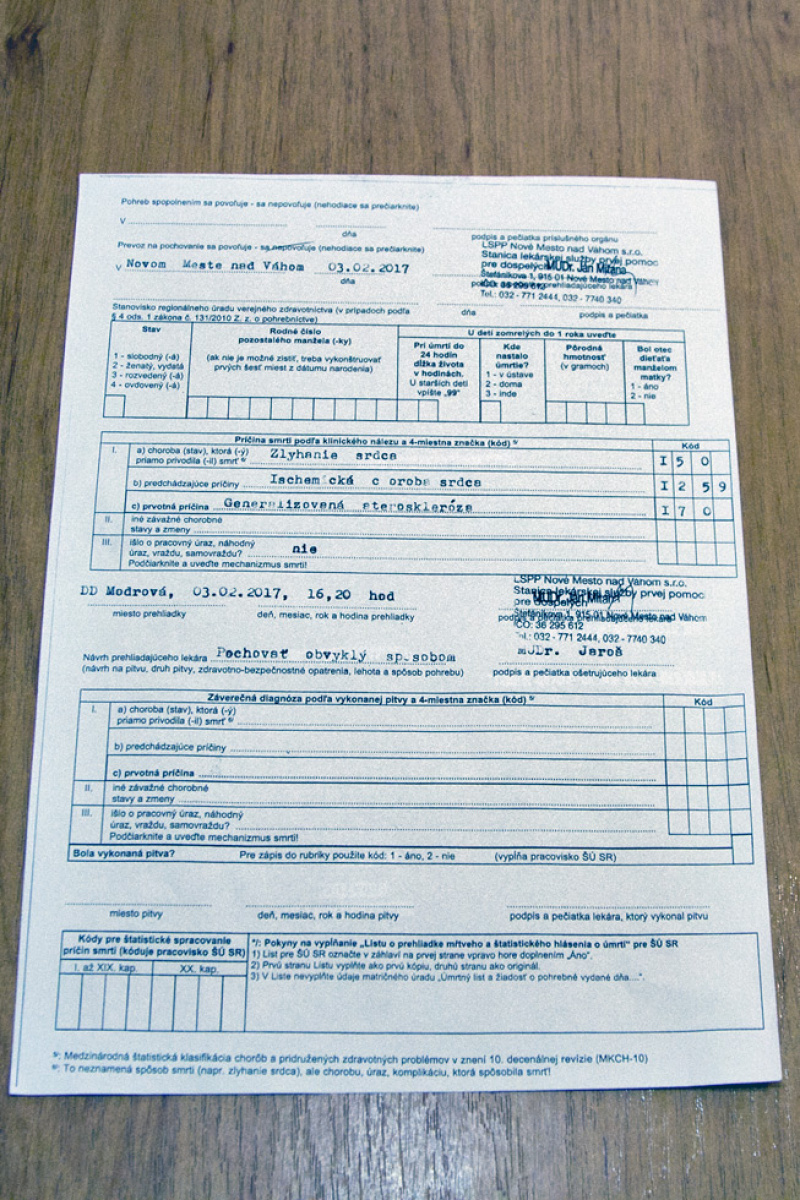 Pohreb spopolnením sa povoľuje - sa nepovoľuje (nehodiace sa prečiarknite)
V
dňa
podpis a pečiatka príslušného orgánu
Prevoz na pochovanie sa povoľuje - sa nepovoľuje (nehodiace sa prečiarknite)
LSPP Nové Mesto nad Váhom s.r.o.
Stanica lekárskej služby prvej pomoc
pre dospelých MUDr. Ján Mitana
v Novom Meste nad Váhom 03.02.2017
Štefánikova 1, 915 01 Nové Mesto nad Váhom
dňa
IČO: 36 295 612
Tel.: 032 - 771 2444, 032 - 7740 340
Stanovisko regionálneho úradu verejného zdravotníctva (v prípadoch podľa
§ 4 ods. 1 zákona č. 131/2010 Z. z. o pohrebníctve)
dňa
podpis a pečiatka
Stav
1 - slobodný (-á)
2 - ženatý, vydatá
3 - rozvedený (-á)
4 - ovdovený (-á)
Rodné číslo
pozostalého manžela (-ky)
(ak nie je možné zistiť, treba vykonštruovať
prvých šesť miest z dátumu narodenia)
U detí zomrelých do 1 roka uveďte
Pri úmrtí do
24 hodín
dĺžka života
v hodinách.
U starších detí
vpíšte „99“
Kde
nastalo
úmrtie?
1 - v ústave
2 - doma
3 - inde
Pôrodná
hmotnosť
(v gramoch)
Bol otec
dieťaťa
manželom
matky?
1 - áno
2 - nie
Príčina smrti podľa klinického nálezu a 4-miestna značka (kód)
Kód
I.
a) choroba (stav), ktorá (-ý)
priamo privodila (-il) smrť Zlyhanie srdca
I 5 0
b) predchádzajúce príčiny Ischemická c oroba srdca
I 2 5 9
c) prvotná príčina Generalizovaná ateroskleróza
I 7 0
II.
iné závažné chorobné
stavy a zmeny
III.
išlo o pracovný úraz, náhodný
úraz, vraždu, samovraždu? nie
Podčiarknite a uveďte mechanizmus smrti!
DD Modrová, 03.02.2017, 16,20 hod
miesto prehliadky
deň, mesiac, rok a hodina prehliadky
LSPP Nové Mesto nad Váhom s.r.o.
Stanica lekárskej služby prvej pomoc
pre dospelých MUDr. Ján Mitana
Štefánikova 1, 915 01 Nové Mesto nad Váhom
podpis a pečiatka prehliadajúceho lekára
IČO: 36 295 612
Tel.: 032 - 771 2444, 032 - 7740 340
MUDr. Jaroš
Návrh prehliadajúceho lekára Pochovať obvyklý sp.sobom
(návrh na pitvu, druh pitvy, zdravotno-bezpečnostné opatrenia, lehota a spôsob pohrebu)
podpis a pečiatka ošetrujúceho lekára
Záverečná diagnóza podľa vykonanej pitvy a 4-miestna značka (kód)
Kód
I.
a) choroba (stav), ktorá (-ý)
priamo privodila (-il) smrť
b) predchádzajúce príčiny
c) prvotná príčina
II.
iné závažné chorobné
stavy a zmeny
III.
išlo o pracovný úraz, náhodný
úraz, vraždu, samovraždu?
Podčiarknite a uveďte mechanizmus smrti!
Bola vykonaná pitva?
Pre zápis do rubriky použite kód: 1 - áno, 2 - nie
(vypĺňa pracovisko ŠÚ SR)
miesto pitvy
deň, mesiac, rok a hodina pitvy
podpis a pečiatka lekára, ktorý vykonal pitvu
Kódy pre štatistické spracovanie
príčin smrti (kóduje pracovisko ŠÚ SR)
I. až XIX. kap.
XX. kap.
*/: Pokyny na vypĺňanie „Listu o prehliadke mŕtveho a štatistického hlásenia o úmrtí“ pre ŠÚ SR
1) List pre ŠÚ SR označte v záhlaví na prvej strane vpravo hore doplnením „Áno“.
2) Prvú stranu Listu vyplňte ako prvú kópiu, druhú stranu ako originál.
3) V Liste nevyplňte údaje matričného úradu „Úmrtný list a žiadosť o pohrebné vydané dňa....“.
Medzinárodná štatistická klasifikácia chorôb a pridružených zdravotných problémov v znení 10. decenálnej revízie (MKCH-10)
To neznamená spôsob smrti (napr. zlyhanie srdca), ale chorobu, úraz, komplikáciu, ktorá spôsobila smrť!